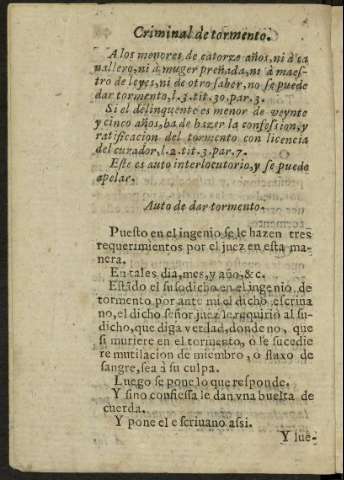 Criminal de tormento.
A los menores de catorze años, ni à ca
uallero, ni à muger preñada, ni à maes-
tro de leyes, ni de otro saber, no se puede
dar tormento, l. 3. tit. 30. par. 3.
Si el delinquente es menor de veynte
y cinco años, ha de hazer la confession, y
ratificacion del tormento con licencia
del curador, l. 2. tit. 3. par. 7.
Este es auto interlocutorio, y se puede
apelar.
Auto de dar tormento.
Puesto en el ingenio se le hazen tres
requerimientos por el juez en esta ma-
nera.
En tales dia, mes, y año, &c.
Estãdo el susodicho en el ingenio de
tormento por ante mi el dicho escriua
no, el dicho señor juez le requirió al su-
dicho, que diga verdad, donde no, que
si muriere en el tormento, ò se sucedie
re mutilacion de miembro, ò fluxo de
sangre, sea à su culpa.
Luego se pone lo que responde.
Y sino confiessa le dan vna buelta de
cuerda.
Y pone el escriuano assi.
Y lue-